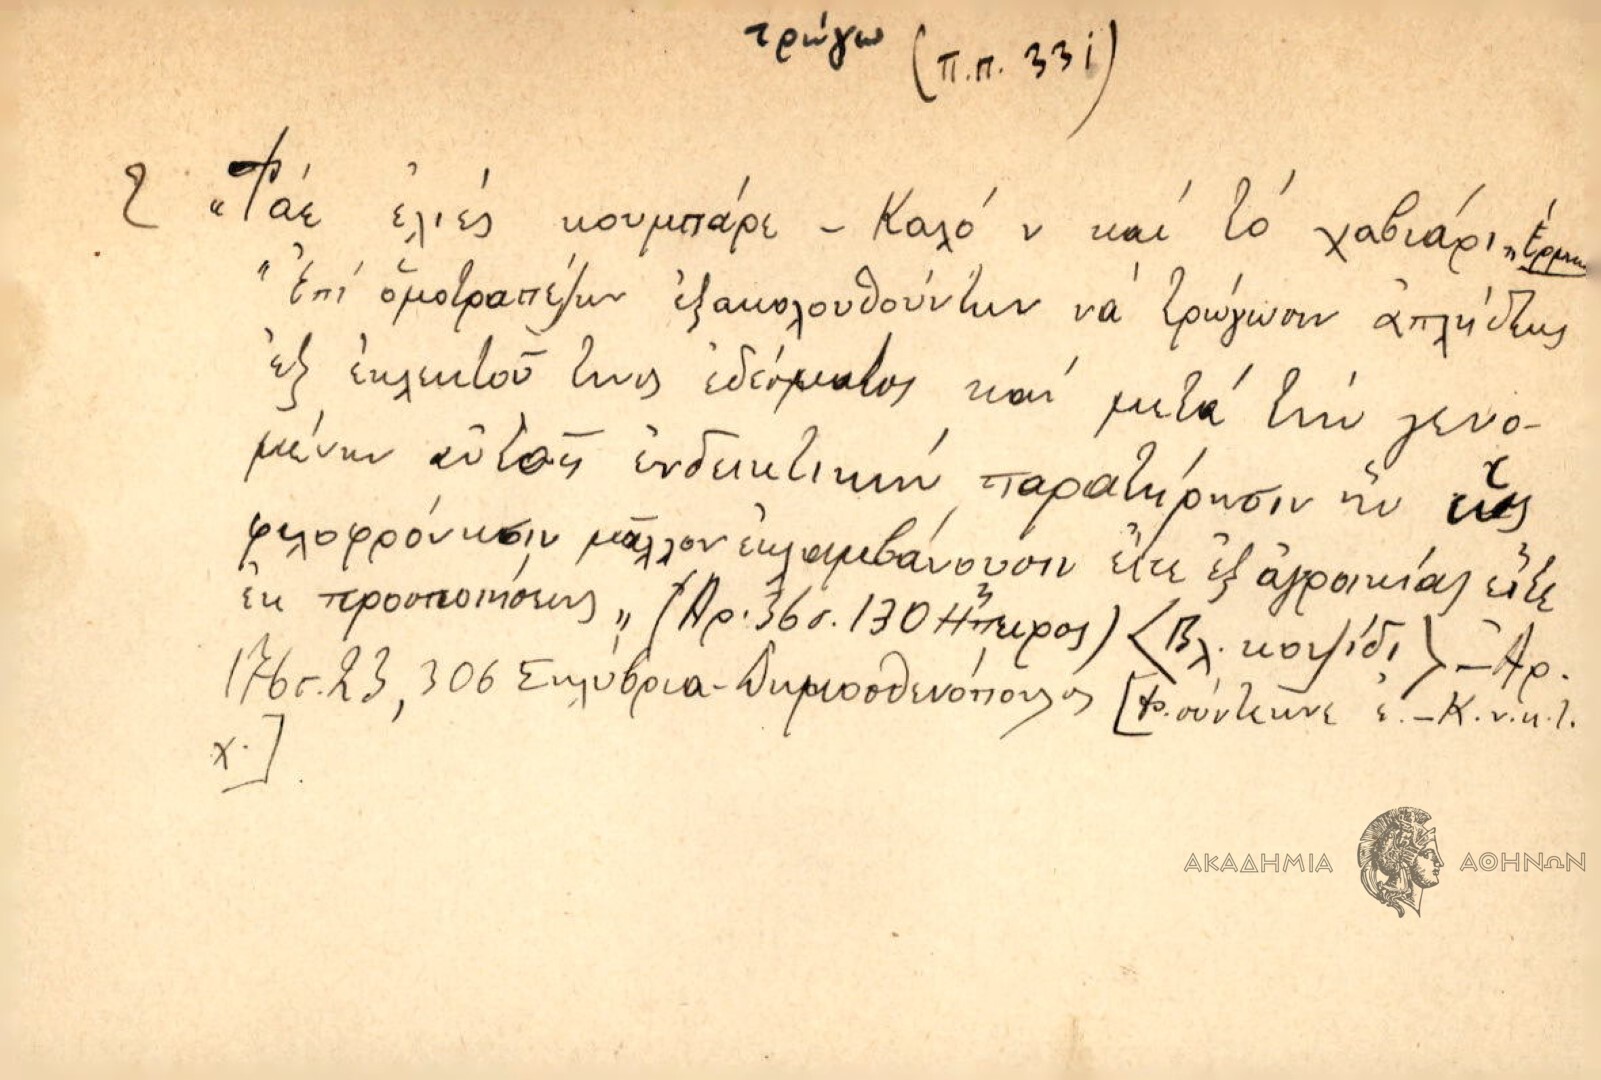 τρώγω (π.π. 331)
"Φάε ἐλιές κουμπάρε – Καλό ν καί τό χαβιάρι" Ἑρμην.
"Ἐπί ὁμοτραπέζων ἐξακολουθούντων νά τρώγωσιν ἀπλήστως
ἐξ ἐκλεκτοῦ τινος ἐδέσματος καί μετά τήν γενο-
μένην αὐτοῖς ἐνδεικτικήν παρατήρησιν ἥν ὡς
φιλοφρόνησιν μᾶλλον ἐκλαμβάνουσιν εἴτε ἐξ ἀγροικίας εἴτε
ἐκ προσποιήσεως" (Ἀρ. 36 σ. 130 Ἤπειρος) <Βλ. κοψίδι> – Ἀρ.
176 σ. 23, 306 Σηλύβρια – Δημοσθενόπουλος [Φ. σύντεκνε ἐ. – Κ. ν. κ. τ.
χ.]
ΑΚΑΔΗΜΙΑ ΑΘΗΝΩΝ